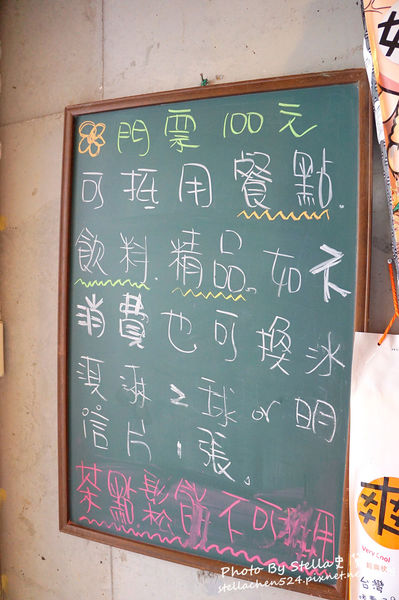 門票 100元
可抵用餐點.
飲料.精品。如不
消費也可換冰
淇淋2球or明
信片1張。
茶點鬆餅不可抵用
Photo By Stella史
stellachen524.pixnet.n
Very Cool
台灣